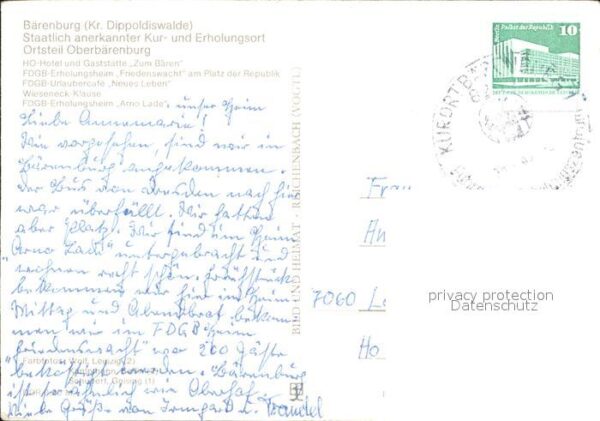 Bärenburg (Kr. Dippoldiswalde)
Staatlich anerkannter Kur- und Erholungsort
Ortsteil Oberbärenburg
HO-Hotel und Gaststätte „Zum Bären"
FDGB-Erholungsheim „Friedenswacht" am Platz der Republik
FDGB-Urlaubercafe „Neues Leben"
Wieseneck-Klause
FDGB-Erholungsheim „Arno Lade", unser Heim
Liebe Annemarie!
Wie vorgesehen, sind wir in
Bärenburg angekommen.
Der Bus von Dresden nach hier
war überfüllt. Wir hatten
aber Platz. Wir sind im Heim
"Arno Lade" untergebracht und
wohnen recht schön. Frühstück
bekommen wir hier im Heim
Mittag und Abendbrot bekom-
men wir im FDGB Heim
"Friedenswacht" wo 200 Gäste
beköstigt werden. Bärenburg
ist so ähnlich wie Oberhof.
Viele Grüße von Irmgard u. Traudel
Farbfotos: Wolf, Leipzig (2)
Schubert, Geising (1)
BILD UND HEIMAT · REICHENBACH (VOGTL)
Palast der Republik
10
KURORT
Frau
An
7060 Le
Ho
privacy protection
Datenschutz